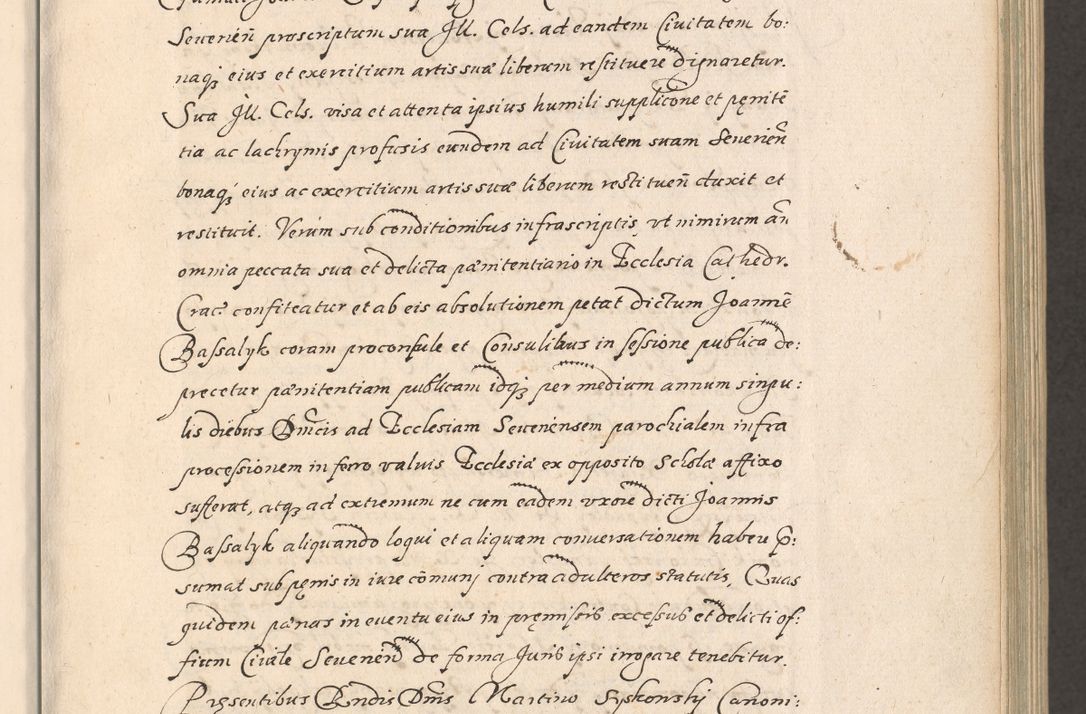 Severien̄ proscriptum sua Ill. Cels. ad eandem Civitatem bo:
naqȝ eius et exercitium artis suæ liberum restituere dignaretur.
Sua Ill. Cels. visa et attenta ipsius humili supplicōne et pęnitē
tia ac lachrymis profusis eundem ad Civitatem suam Severien̄
bonaqȝ eius ac exercitium artis suæ liberum restituen̄ duxit et
restituit. Verùm sub conditionibus infrascriptis, vt nimirum an̄
omnia peccata sua et delicta pænitentiario in Ecclesia Cathedr.
Crac. confiteatur et ab eis absolutionem petat dictum Joannē
Bassalyk coram proconsule et Consulibus in sessione publica de:
precetur pænitentiam publicam idqȝ per medium annum singu:
lis diebus Dn̄icis ad Ecclesiam Severiensem parochialem infra
processionem in ferro valvis Ecclesiæ ex opposito Scholæ affixo
sufferat, atqȝ ad extremum ne cum eadem vxore dicti Joannis
Bassalyk aliquando loqui et aliquam conversationem habere p̄:
sumat sub pęnis in iure cōmuni contra adulteros statutis, Quas
quidem pænas in eventu eius in pręmissis excessus et delicti of:
ficium Civile Severien̄ de forma Juris ipsi irrogare tenebitur.
Pręsentibus Rn̄dis Dn̄is Martino Syskowskij Canoni: